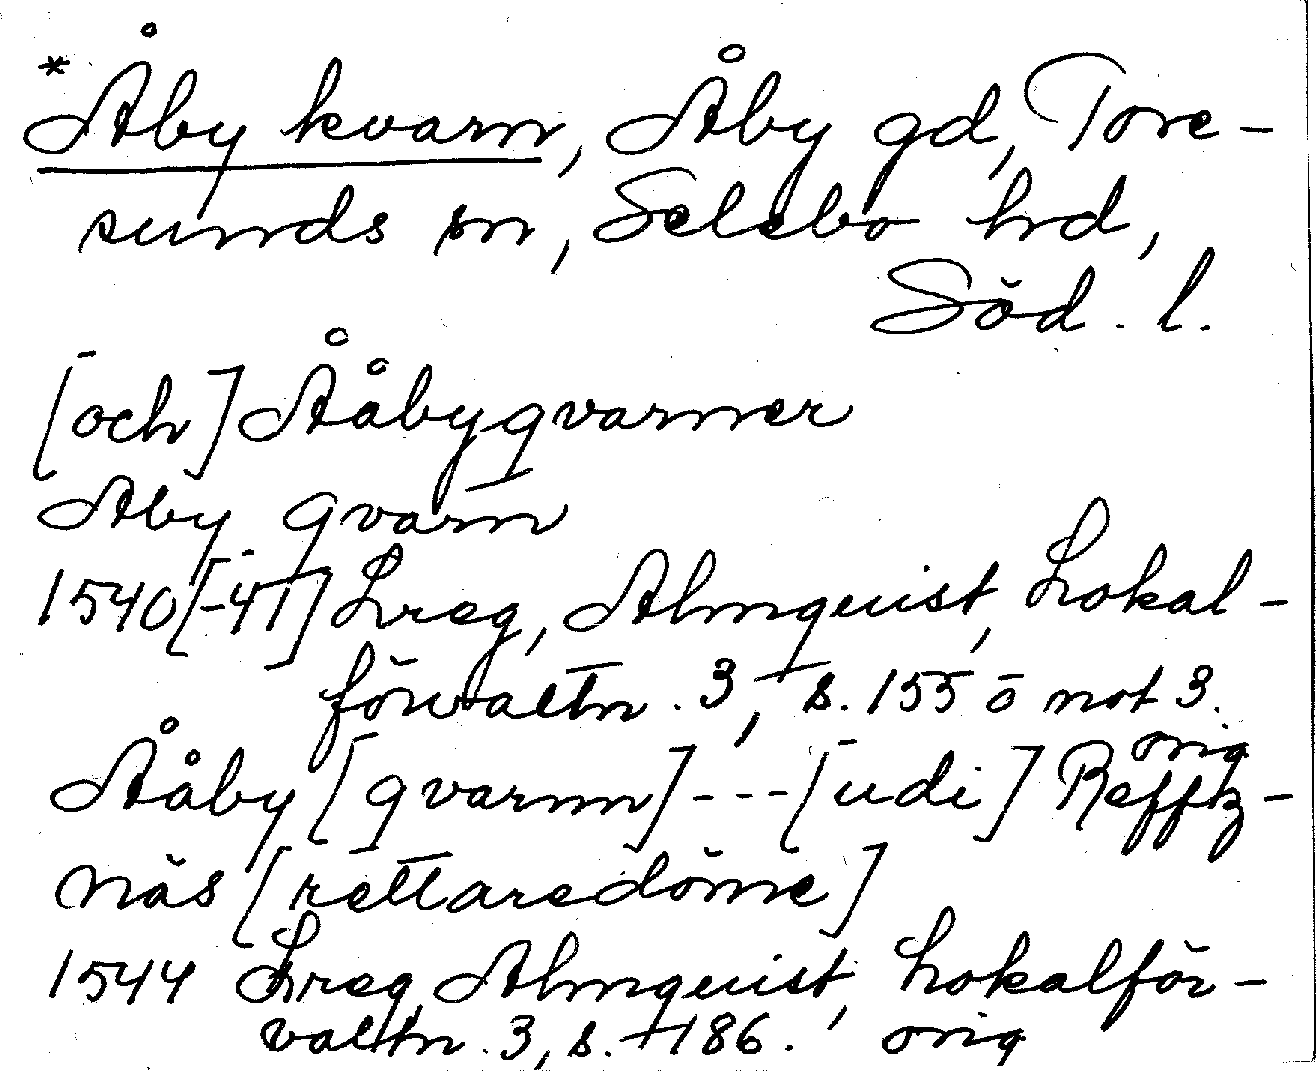 *Åby kvarn, Åby gd, Tore-
sunds sn, Selebo hrd,
Söd. l.
[och] Ååbyqvarner
Aby qvarn
1540[-41] Lreg, Almquist, Lokal-
förvaltn. 3, s. 155 o not 3.
orig
Ååby [qvarnn] --- [udi] Reffz-
näs [rettaredöme]
1544 Lreg, Almquist, Lokalför-
valtn. 3, s. 186. orig